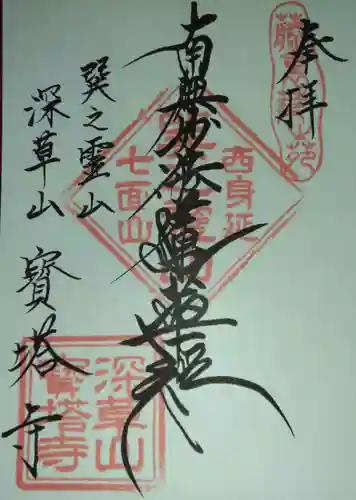 奉拝
南無妙法蓮華経
巽之霊山
深草山
寳塔寺
西身延
七面山
深草山
寳塔寺